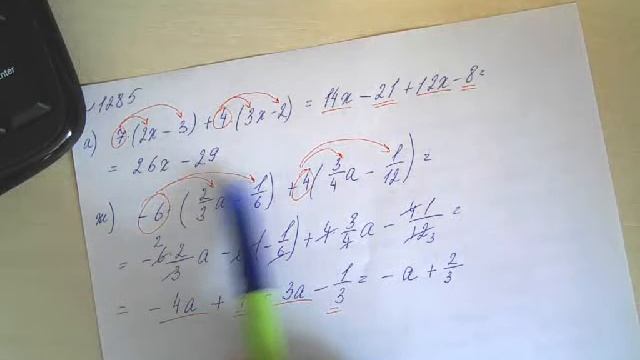 1285
а) 7(2x - 3) + 4(3x - 2) = 14x - 21 + 12x - 8 =
= 26x - 29
ж) -6(2/3 a 1/6) + 4(3/4 a - 1/12) =
= -6 2 2/3 a - (-1/6) + 4 3/4 a - 4 1/12 3 =
= -4a + 3a - 1/3 = -a + 2/3
enter